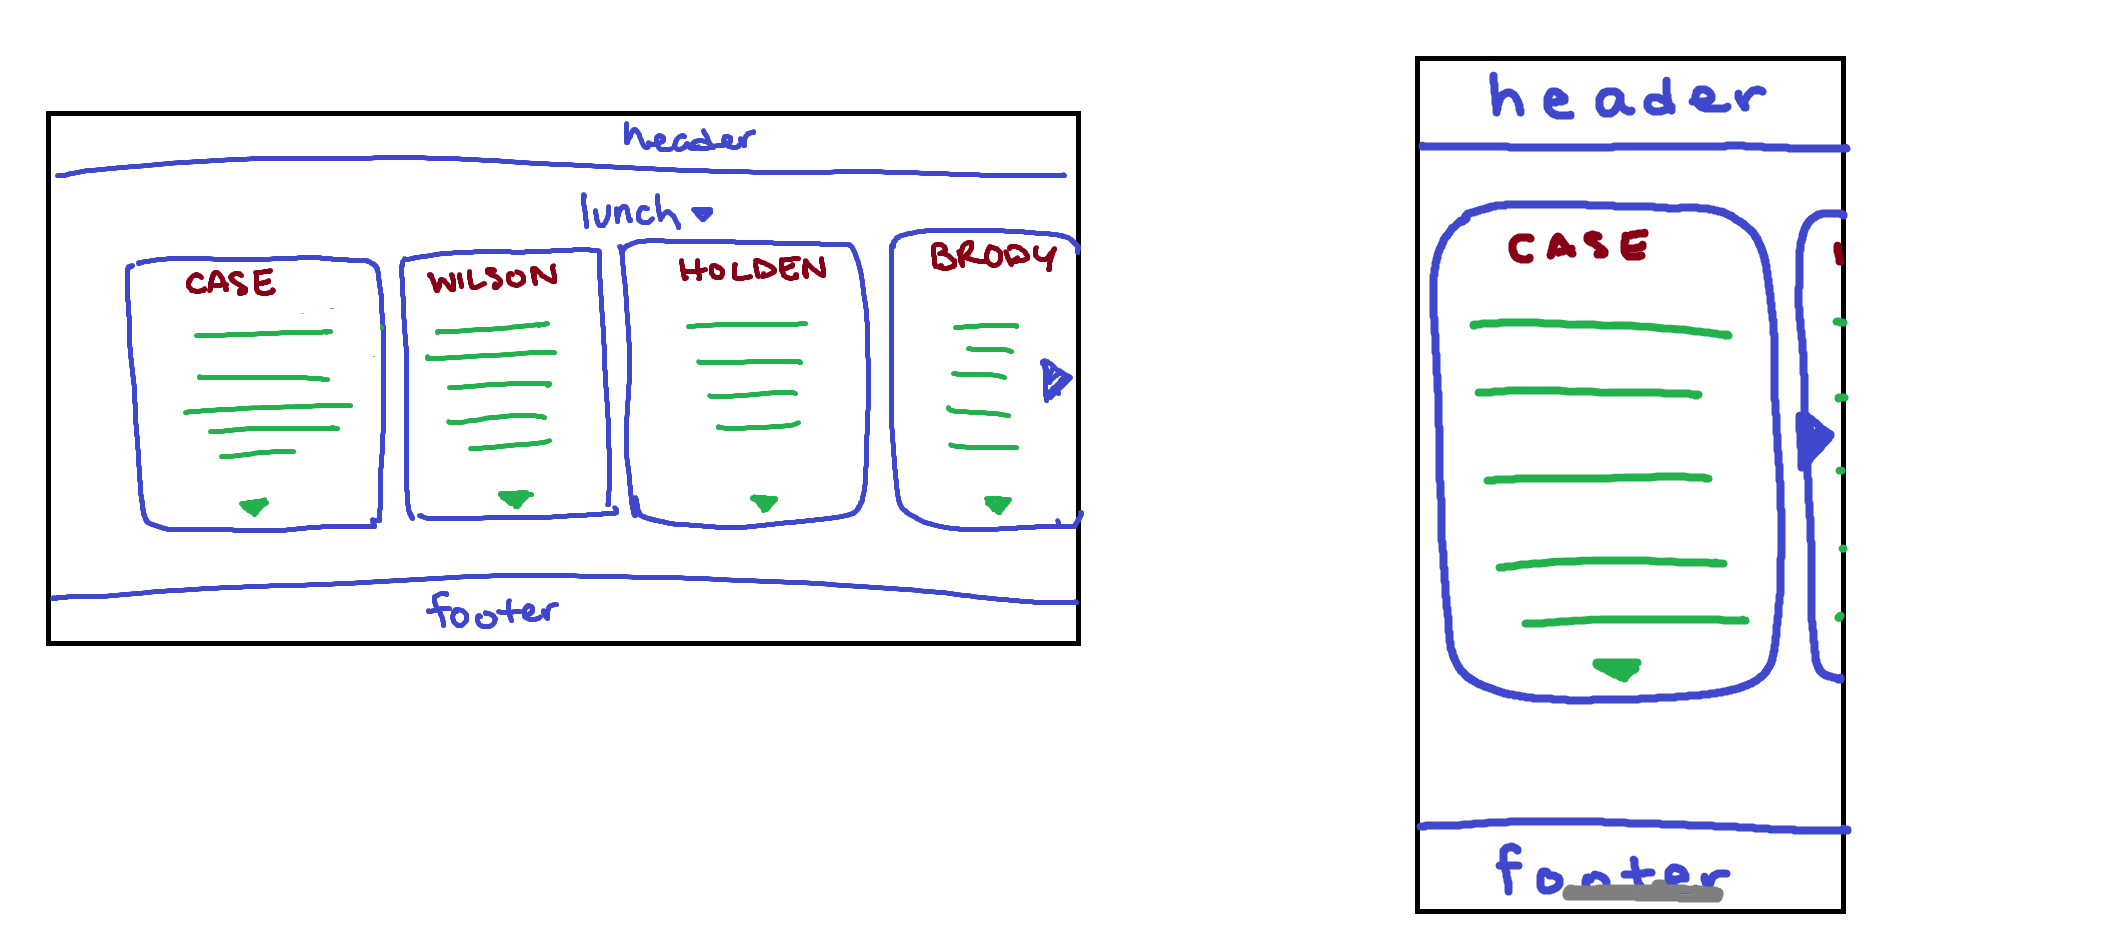 header
lunch
CASE WILSON HOLDEN BRODY
footer
header
CASE
footer